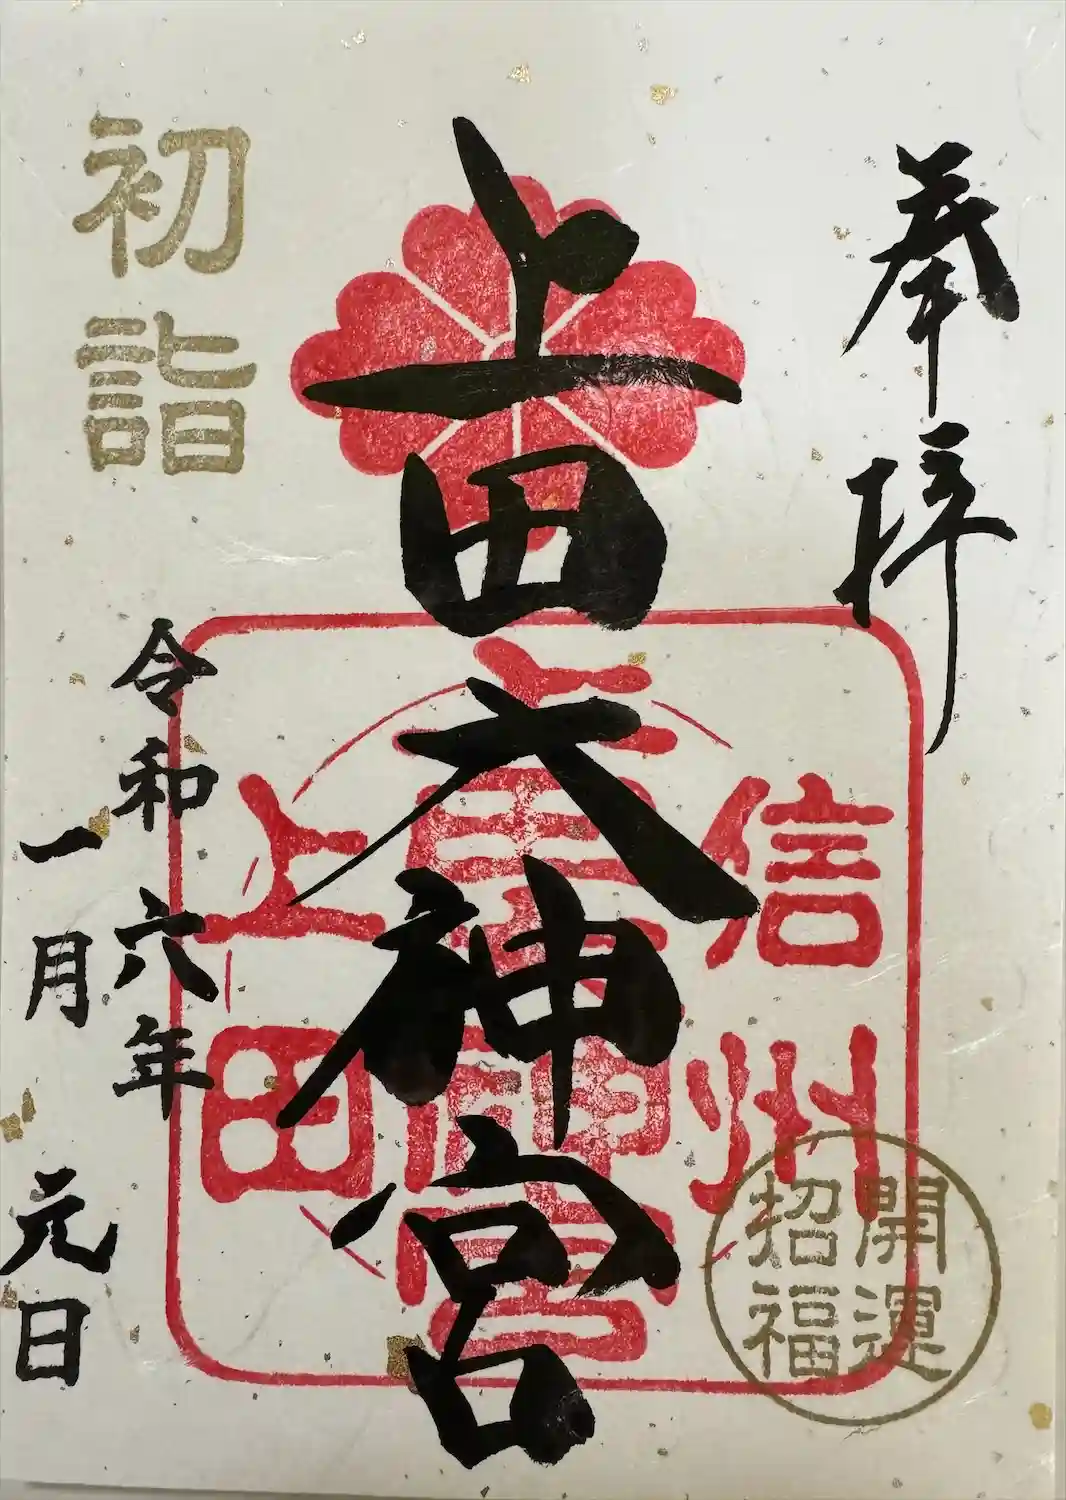 奉拝
上田大神宮
初詣
令和六年
一月元日
信州
上田
大神宮
開運
招福